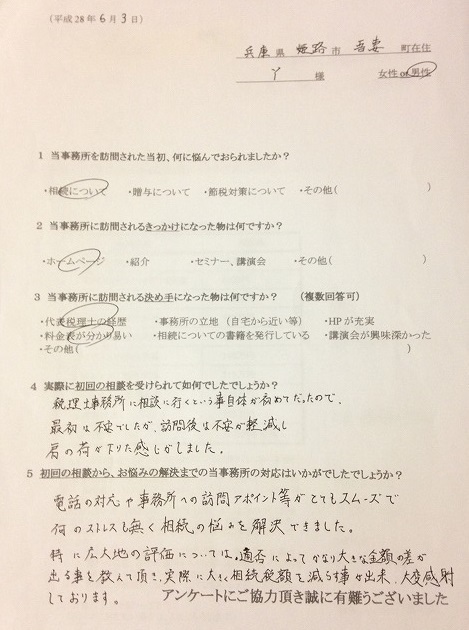 (平成28年6月3日)
兵庫県姫路市吾妻町在住
Y 様 女性or男性
1 当事務所を訪問された当初、何に悩んでおられましたか？
・相続について ・贈与について ・節税対策について ・その他( )
2 当事務所に訪問されるきっかけになった物は何ですか？
・ホームページ ・紹介 ・セミナー、講演会 ・その他( )
3 当事務所に訪問される決め手になった物は何ですか？ (複数回答可)
・代表税理士の経歴 ・事務所の立地（自宅から近い等） ・HPが充実
・料金表が分かり易い ・相続についての書籍を発行している ・講演会が興味深かった
・その他( )
4 実際に初回の相談を受けられて如何でしたでしょうか？
税理士事務所に相談に行くという事自体が初めてだったので、
最初は不安でしたが、訪問後は不安が軽減し
肩の荷が下りた感じがしました。
5 初回の相談から、お悩みの解決までの当事務所の対応はいかがでしたでしょうか？
電話の対応や事務所への訪問アポイント等がとてもスムーズで
何のストレスも無く相続の悩みを解決できました。
特に広大地の評価については、適否によってかなり大きな金額の差が
出る事を教えて頂き、実際に大きく相続税額を減らす事が出来、大変感謝
しております。 アンケートにご協力頂き誠に有難うございました